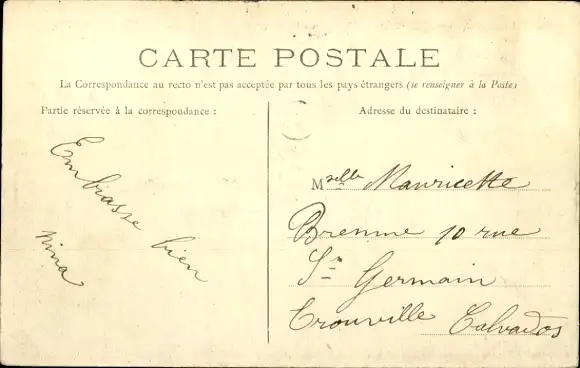 CARTE POSTALE
La Correspondance au recto n'est pas acceptée par tous les pays étrangers (se renseigner à la Poste)
Partie réservée à la correspondance :
Adresse du destinataire :
Embrasse bien
Nina
Mselle Mauricette
Bremme 10 rue
St Germain
Trouville Calvados